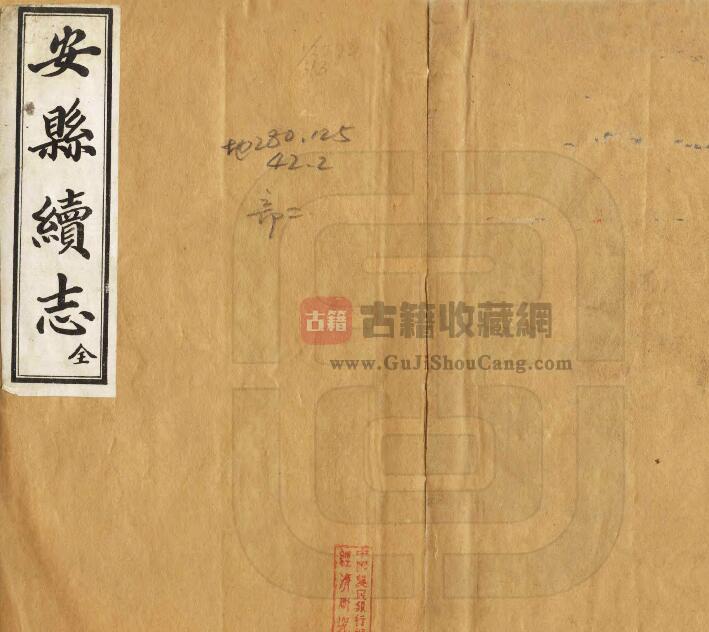 安縣續志
全
地280.125
42.2
部二
古籍
古籍收藏網
www.GuJiShouCang.com